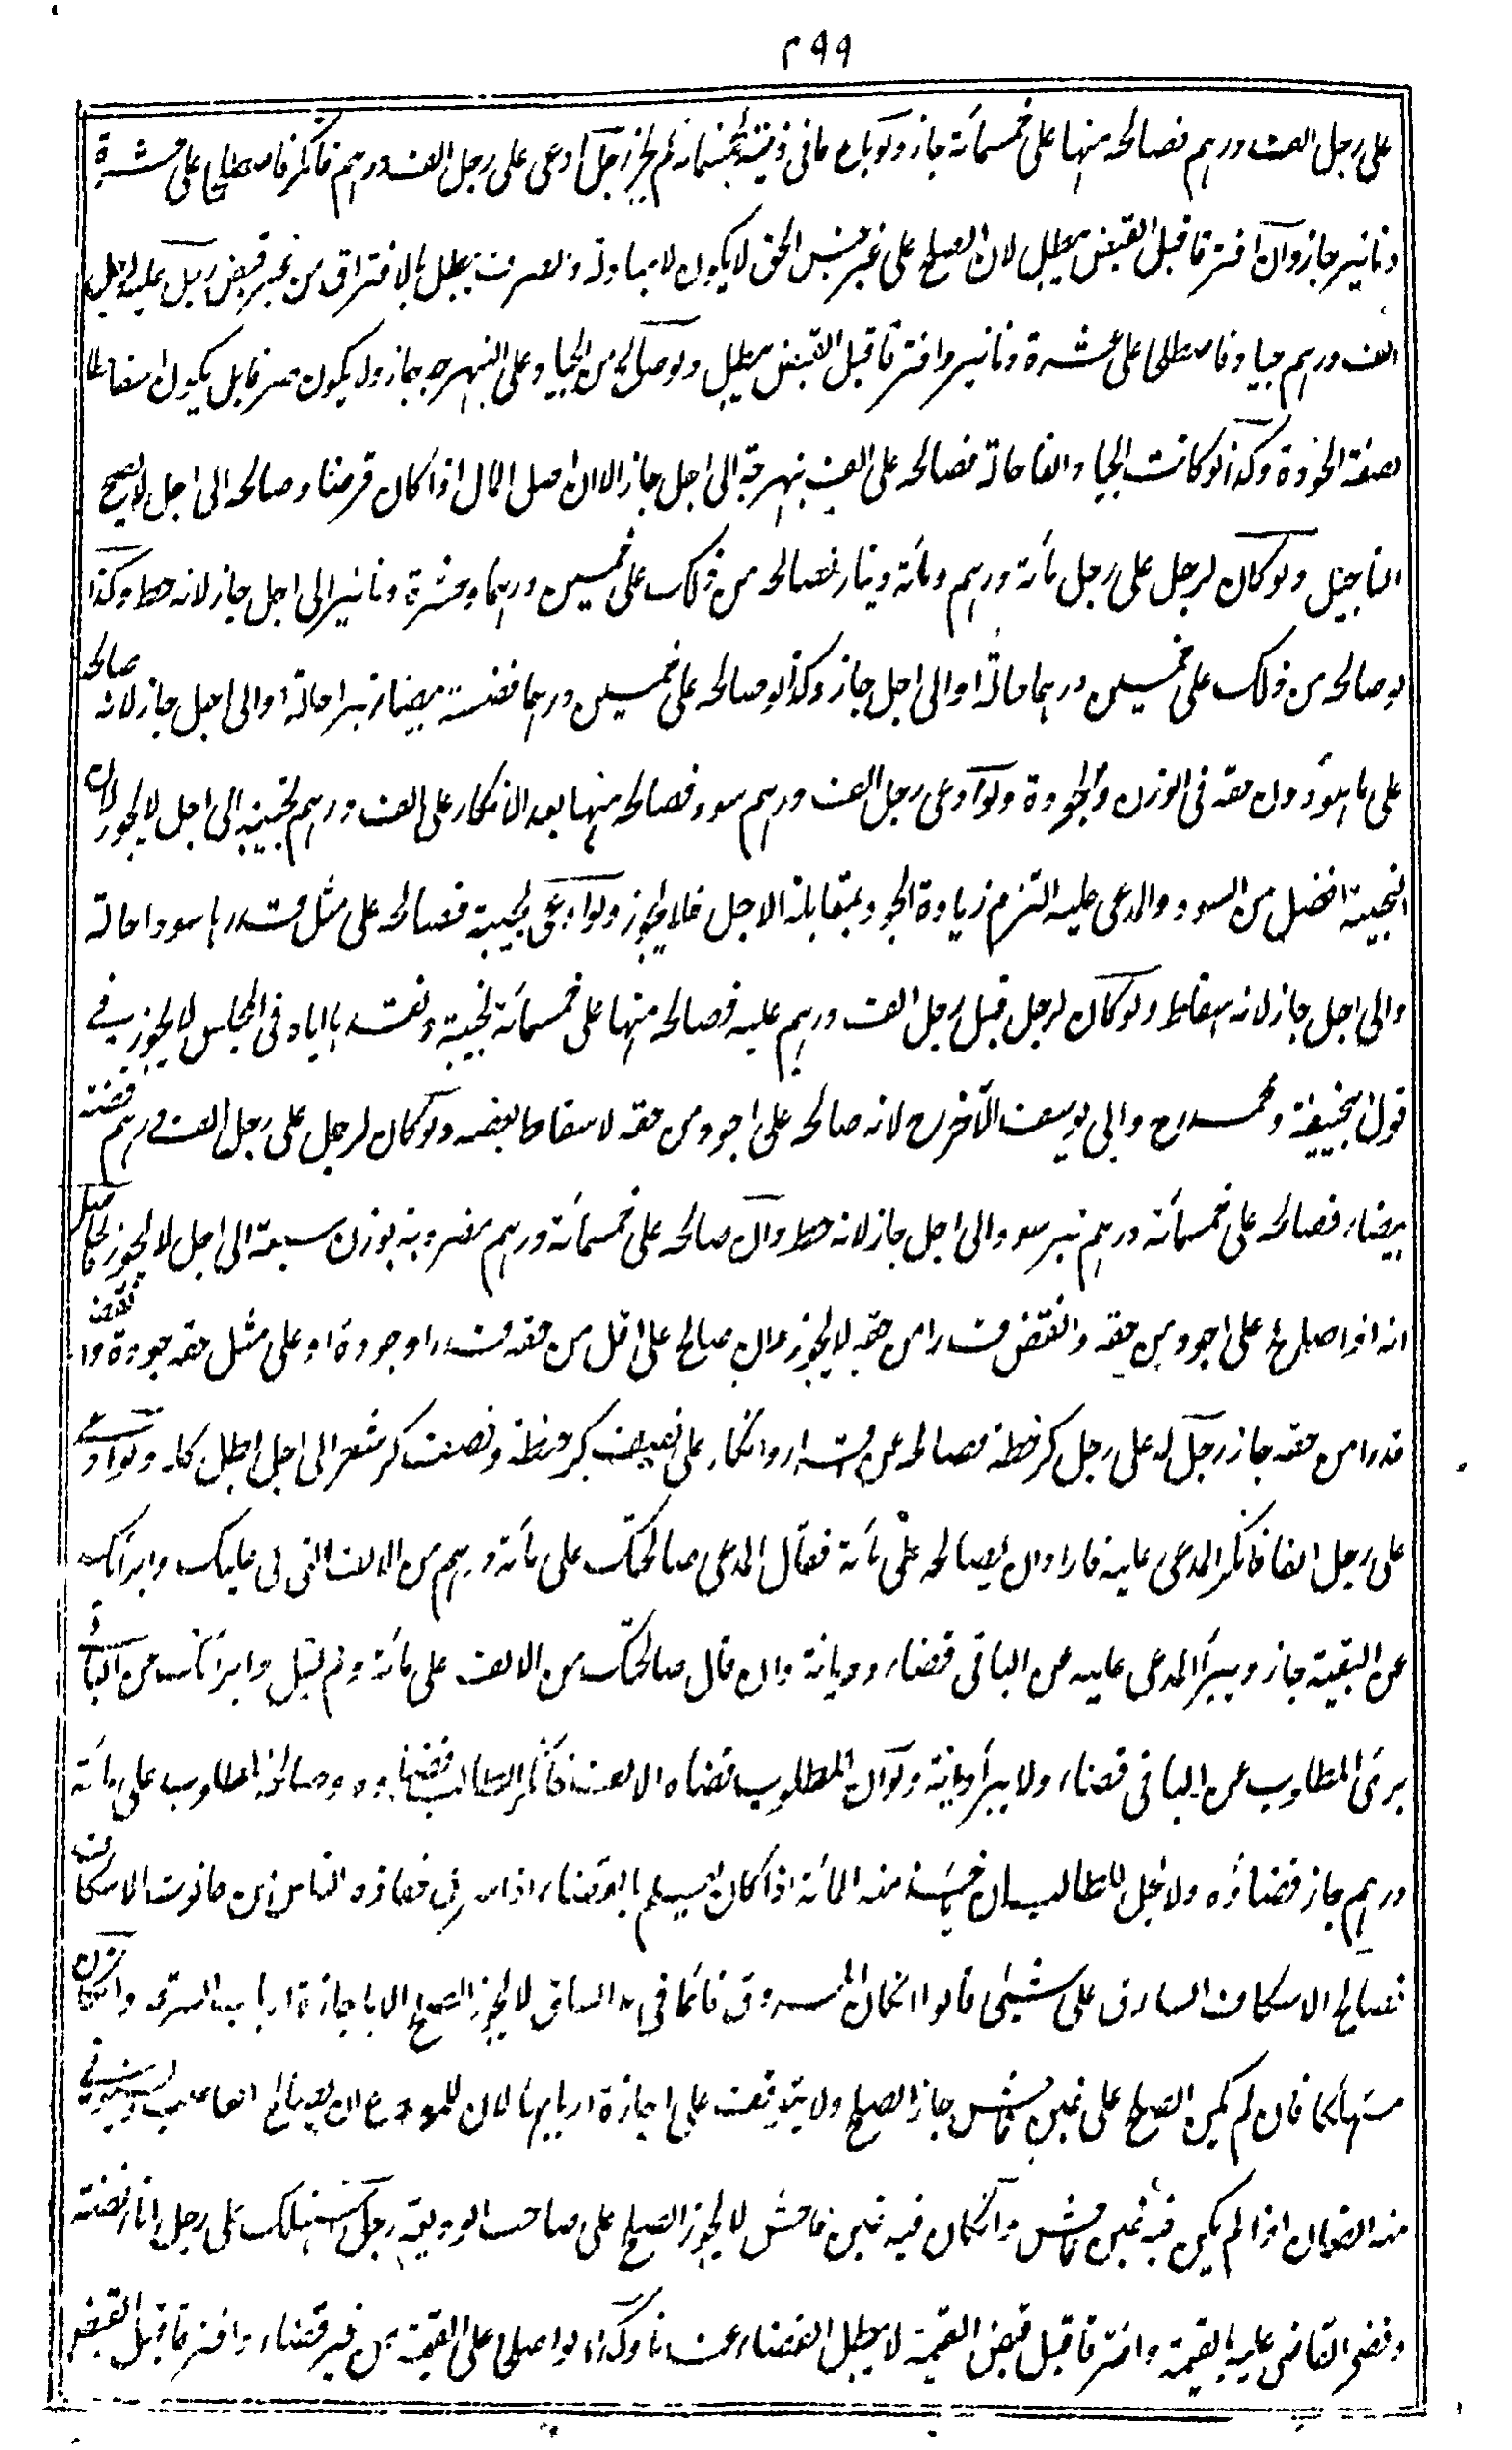 ٢٩٩
على رجل الف درهم فصالحه منها على خمسمائة جاز ولو باع ما فى ذمته بخمسمائة لم يجز رجل ادعى على رجل الف درهم فانكر فاصطلحا على عشرة
دنانير جاز وان افترقا قبل القبض يبطل لان الصلح على غير جنس الحق لا يكون الا مبادلة والصرف يبطل بالافتراق من غير قبض رجل عليه لرجل
الف درهم جياد فاصطلحا على عشرة دنانير وافترقا قبل القبض يبطل ولو صالحه من الجياد على النبهرجة جاز ولا يكون صرفا بل يكون اسقاطا
لصفة الجودة وكذا لو كانت الجياد الفا حالة فصالحه على الف نبهرجة الى اجل جاز الا ان اصل المال اذا كان قرضا وصالحه الى اجل لا يصح
التاجيل ولو كان لرجل على رجل مائة درهم ومائة دينار فصالحه من ذلك على خمسين درهما وعشرة دنانير الى اجل جاز لانه حط وكذا
لو صالحه من ذلك على خمسين درهما حالة او الى اجل جاز وكذا لو صالحه على خمسين درهما فضة بيضاء تبرا حالة او الى اجل جاز لانه صالحه
على ما هو دون حقه فى الوزن والجودة ولو ادعى رجل الف درهم سود فصالحه منها بعد الانكار على الف درهم نجيبة الى اجل لا يجوز لان
النجيبة افضل من السود والمدعى عليه التزم زيادة الجودة بمقابلة الاجل فلا يجوز ولو ادعى نجيبة فصالحه على مثل قدرها سودا حالة
والى اجل جاز لانه اسقاط ولو كان لرجل قبل رجل الف درهم عليه فصالحه منها على خمسمائة نجيبة ونقدها اياه فى المجلس لا يجوز فى
قول ابيحنيفة ومحمد رح وابى يوسف الآخر رح لانه صالحه على اجود من حقه لاسقاط بعضه ولو كان لرجل على رجل الف درهم فضة
بيضاء فصالحه على خمسمائة درهم تبر سود الى اجل جاز لانه حط وان صالحه على خمسمائة درهم مضروبة بوزن سبعة الى اجل لا يجوز فالحاصل
انه اذا صالح على اجود من حقه وانقص قدرا من حقه لا يجوز وان صالح على اقل من حقه قدرا وجودة او على مثل حقه جودة وانقص
قدرا من حقه جاز رجل له على رجل كر حنطة فصالحه عن اقرار وانكار على نصف كر حنطة ونصف كر شعير الى اجل بطل كله ولو ادعى
على رجل الفا فانكر المدعى عليه فاراد ان يصالحه على مائة فقال المدعى صالحتك على مائة درهم من الالف التى لى عليك وابرأتك
عن البقية جاز ويبرأ المدعى عليه عن الباقى قضاء وديانة وان قال صالحتك من الالف على مائة ولم يقل وابرأتك من الباقى
برئ المطلوب عن الباقى قضاء ولا يبرأ ديانة ولو ان المطلوب قضاه الالف فانكر الطالب قضاءه وصالحه المطلوب على مائة
درهم جاز قضاؤه ولا يحل للطالب ان يأخذ منه المائة اذا كان يعلم بالقضاء اذا سرق خفاف الناس من حانوت الاسكاف
فصالح الاسكاف السارق على شيئ قالوا انكان المسروق قائما فى يد السارق لا يجوز الصلح الا باجازة ارباب السرقة وانكان
مستهلكا فان لم يكن الصلح على غبن فاحش جاز الصلح ولا يتوقف على اجازة اربابها لان للمودع ان يصالح الغاصب ويستوفى
منه الضمان اذا لم يكن فيه غبن فاحش وانكان فيه غبن فاحش لا يجوز الصلح على صاحب الوديعة رجل استهلك على رجل اناء فضة
وقضى القاضى عليه بالقيمة وافترقا قبل قبض القيمة لا يبطل القضاء عندنا وكذا لو اصطلحا على القيمة من غير قضاء وافترقا قبل القبض